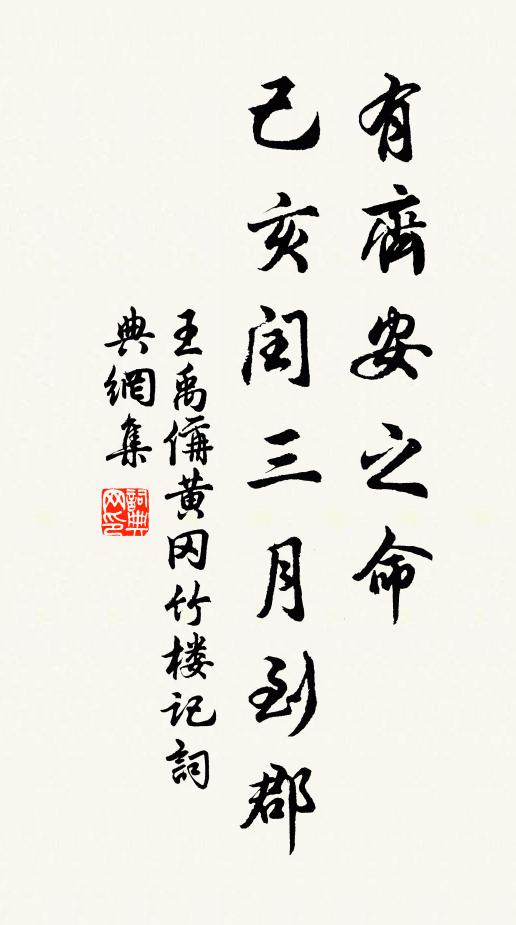 有齊安之命
己亥闰三月到郡
王禹偁黄冈竹楼记詞
典網集
詞典
网印